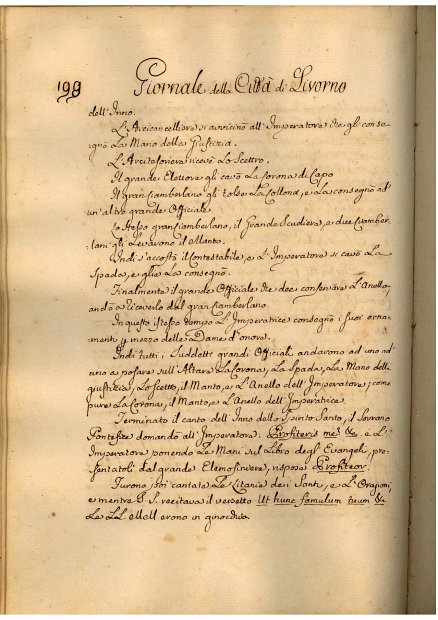 198 Giornale della Città di Livorno
dell'Inno.
L'Arcicancelliere si avvicinò all'Imperatore che gli conse=
gnò La Mano della Giustizia.
L'Arcitesoriere ricevè Lo Scettro.
Il grande Elettore gli cavò La Corona di Capo
Il gran Ciamberlano gli tolse La Collana, e La consegnò ad
un'altro grande Officiale.
Lo stesso gran Ciamberlano, il Grande Scudiere, e due Ciamber=
lani gli Levarono il Manto.
Indi s'accostò il Contestabile, e L'Imperatore si cavò La
Spada, e gliela consegnò.
Finalmente il grande Officiale che dee conservare L'Anello,
andò a riceverlo dal gran Ciamberlano.
In questo istesso tempo L'Imperatrice consegnò i suoi orna=
menti p. mezzo delle Dame d'onore.
Indi tutti i Suddetti grandi Officiali andarono ad uno ad
uno a posare sull'Altare La Corona, La Spada, La Mano della
giustizia, Lo Scetto, il Manto, e L'Anello dell'Imperatore; come
pure La Corona, il Manto, e L'Anello dell'Imperatrice.
Terminato il canto dell'Inno dello Spirito Santo, il Sovrano
Pontefice domandò all'Imperatore: Profiteris ne? &. e L'
Imperatore ponendo Le Mani sul Libro degl'Evangeli, pre=
sentatoli dal grande Elemosiniere, rispose Profiteor.
Furono poi cantate Le Litanie dei Santi, e L'Orazioni,
e mentre S. S. recitava il versetto Ut hunc famulum tuum &c
Le LL. MM. erono in ginocchio.